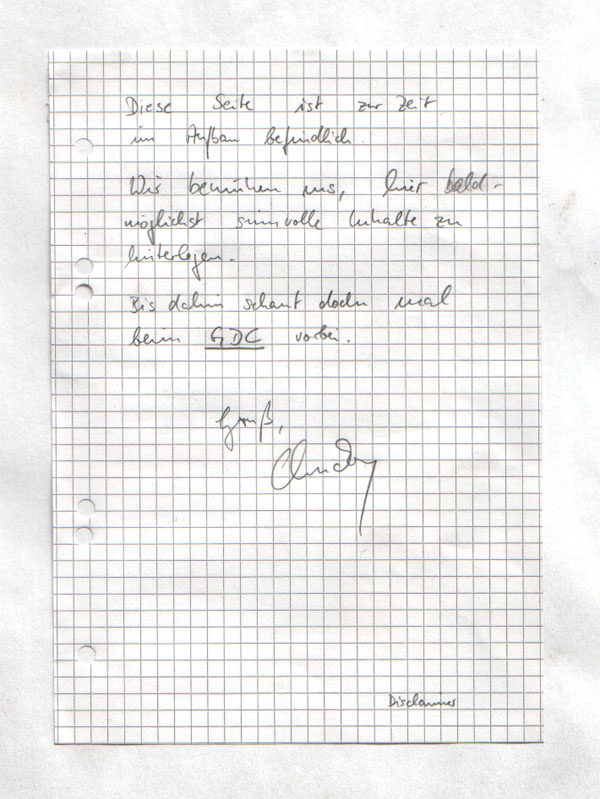 Diese Seite ist zur Zeit
im Aufbau befindlich.
Wir bemühen uns, hier bald-
möglichst sinnvolle Inhalte zu
hinterlegen.
Bis dahin schaut doch mal
beim GDC vorbei.
Gruß,
Disclaimer